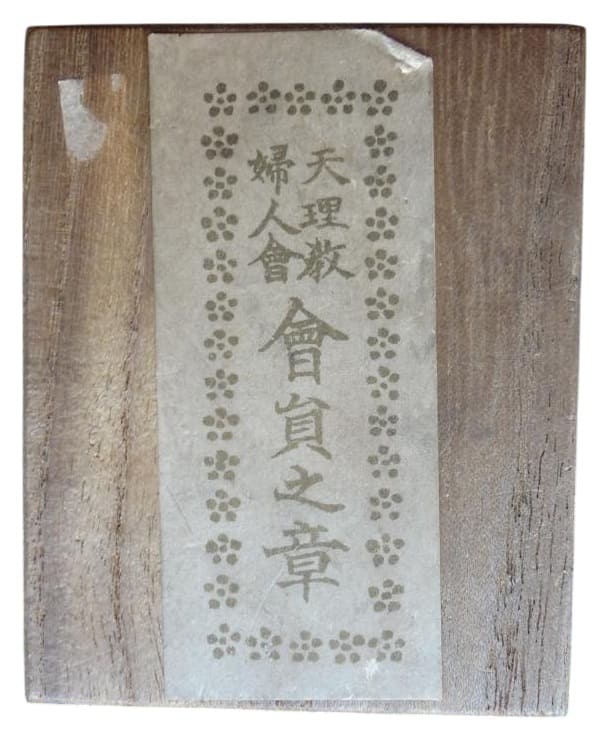 天理教
婦人會
會員之章